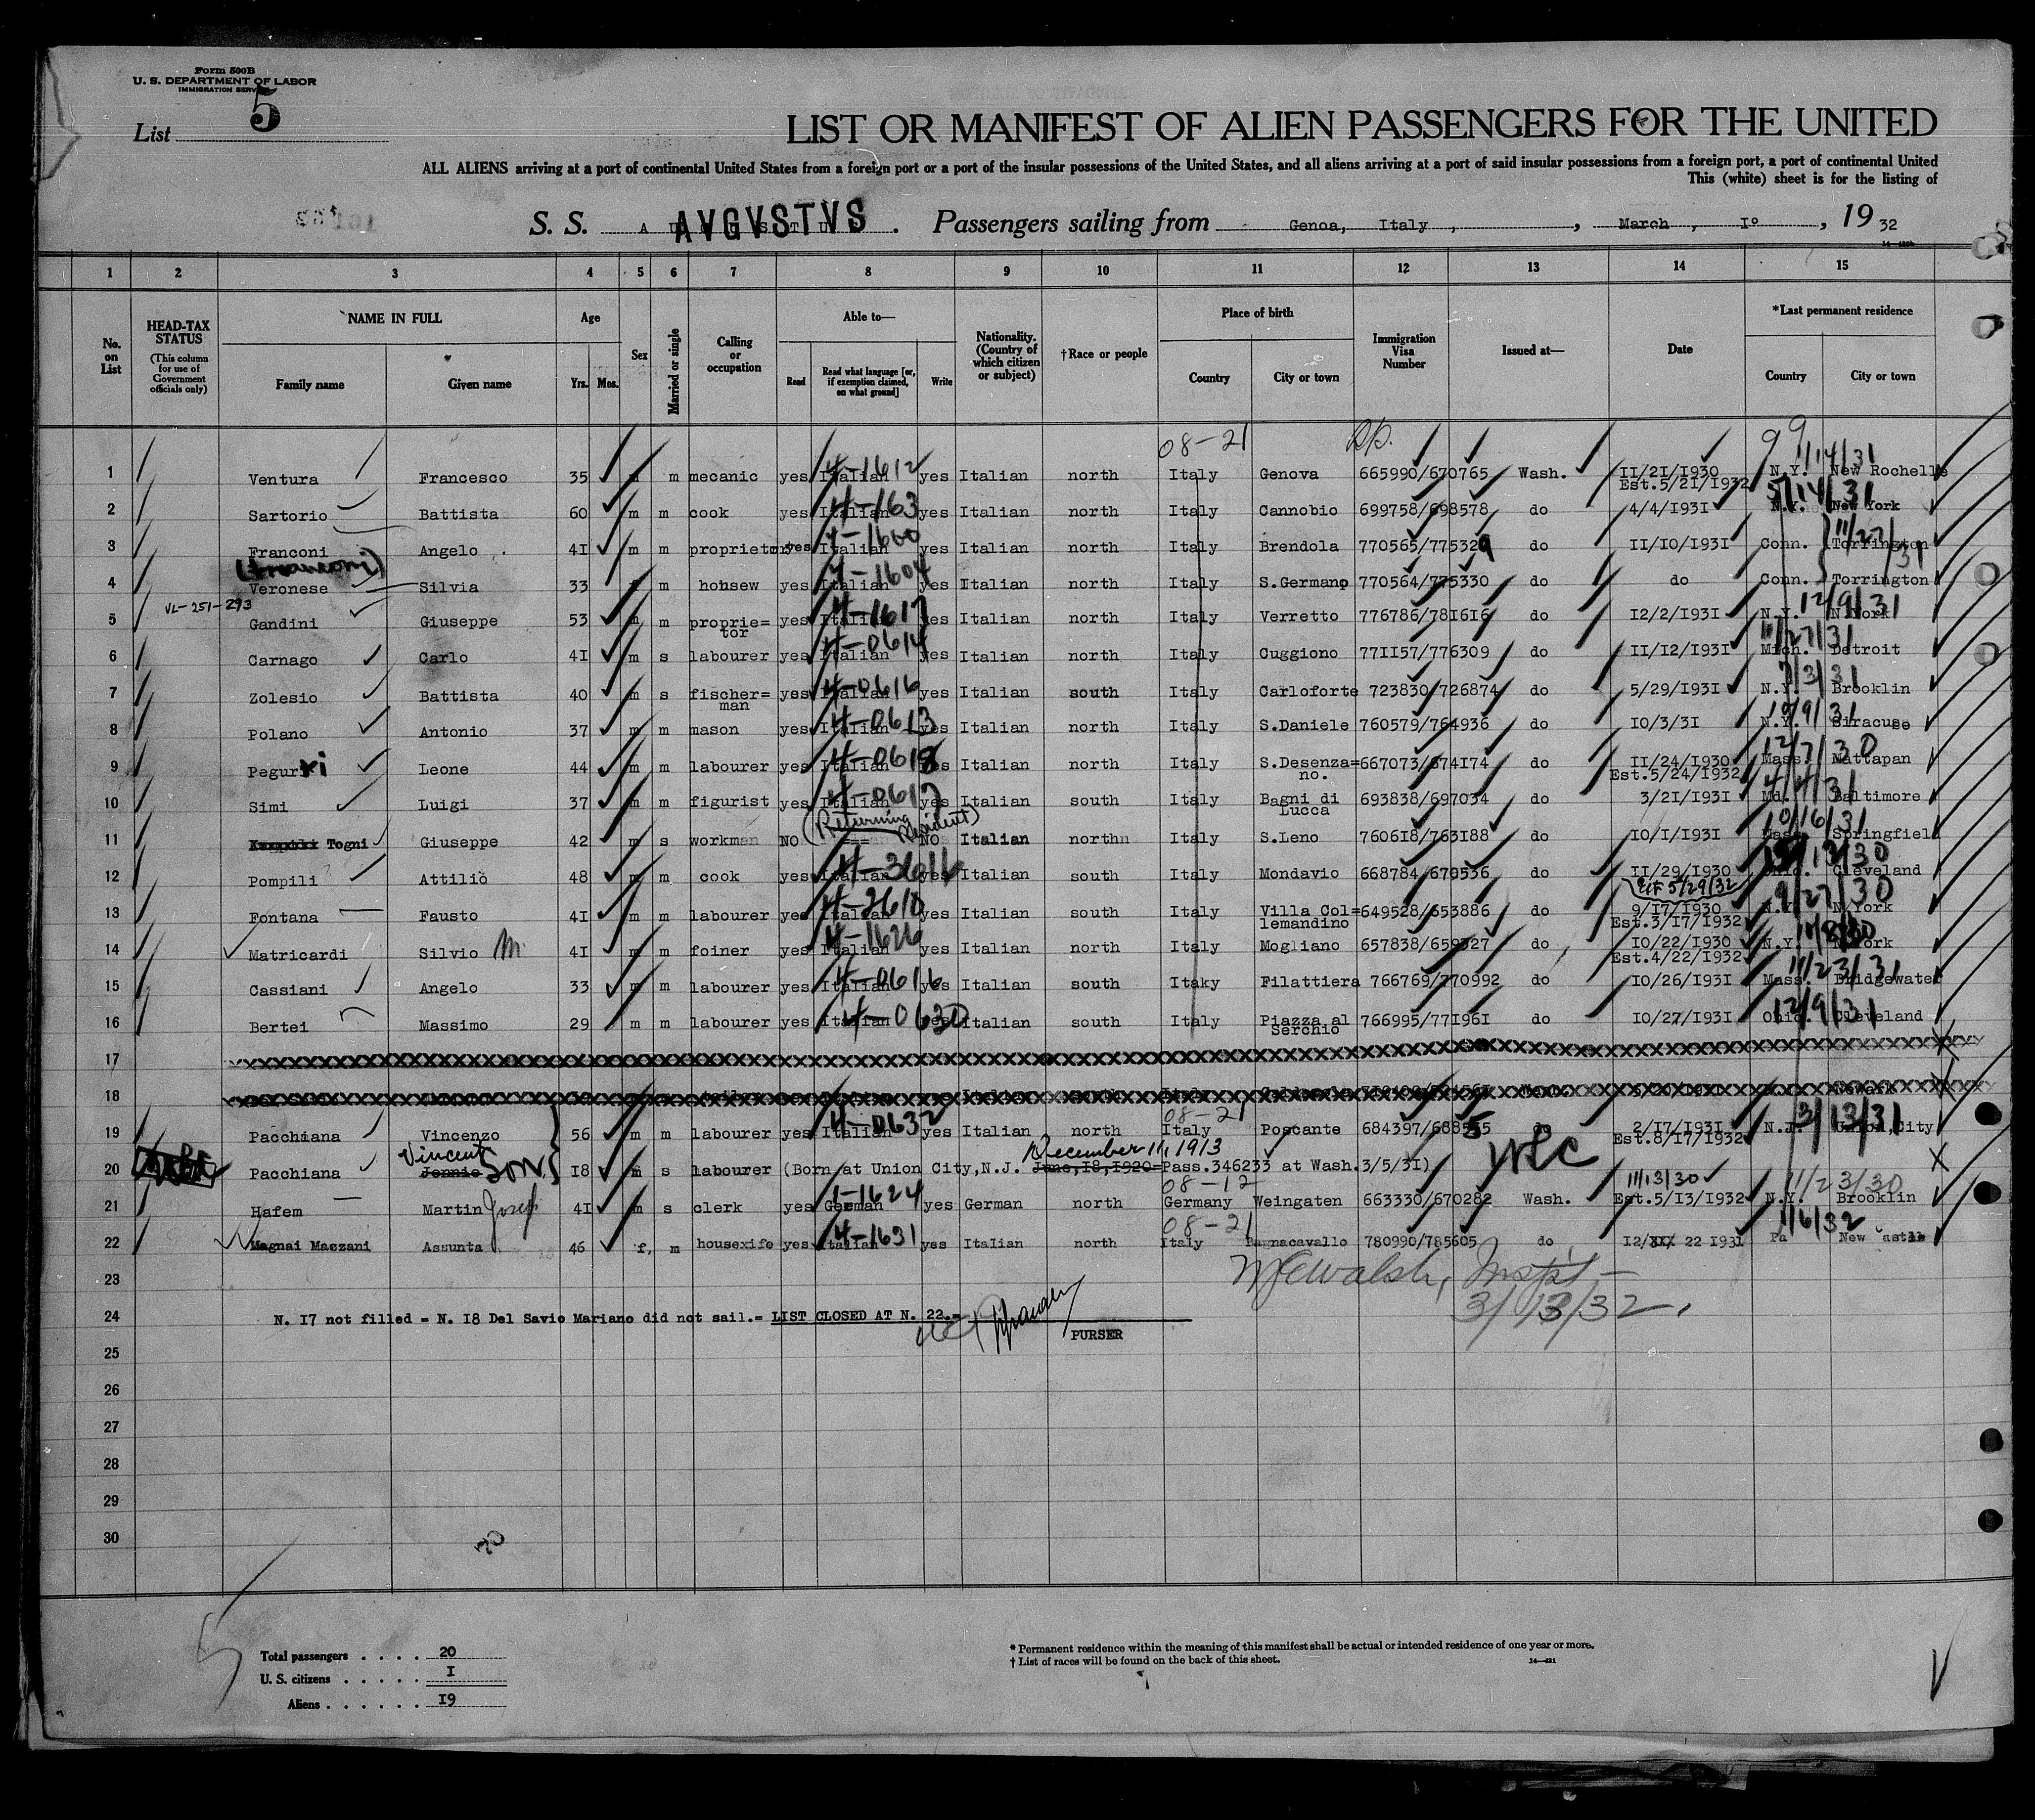 Form 500B
U. S. DEPARTMENT OF LABOR
IMMIGRATION SERVICE
List 5
LIST OR MANIFEST OF ALIEN PASSENGERS FOR THE UNITED
ALL ALIENS arriving at a port of continental United States from a foreign port or a port of the insular possessions of the United States, and all aliens arriving at a port of said insular possessions from a foreign port, a port of continental United
This (white) sheet is for the listing of
S. S. AVGVSTVS. Passengers sailing from Genoa, Italy, March, I°, 19 32
1 2 3 4 5 6 7 8 9 10 11 12 13 14 15
No. on List
HEAD-TAX STATUS
(This column for use of Government officials only)
NAME IN FULL
Family name Given name
Age
Yrs. Mos.
Sex
Married or single
Calling or occupation
Able to—
Read Read what language [or, if exemption claimed, on what ground] Write
Nationality. (Country of which citizen or subject)
†Race or people
Place of birth
Country City or town
Immigration Visa Number
Issued at—
Date
*Last permanent residence
Country City or town
08-21
1 Ventura Francesco 35 m mecanic yes Italian 4-1612 yes Italian north Italy Genova 665990/670765 Wash. II/2I/I930 Est.5/2I/I932 N.Y. New Rochelle 1/14/31
2 Sartorio Battista 60 m m cook yes Italian 4-163 yes Italian north Italy Cannobio 699758/698578 do 4/4/I93I N.Y. New York 5/14/31
3 Franconi Angelo 4I m m proprietor yes Italian 4-1600 yes Italian north Italy Brendola 770565/775329 do II/I0/I93I Conn. Torrington 11/27/31
(Franconi)
4 Veronese Silvia 33 f m housew yes Italian 4-1604 yes Italian north Italy S.Germano 770564/775330 do do Conn. Torrington
VL-251-293
5 Gandini Giuseppe 53 m m proprie=tor yes Italian 4-1617 yes Italian north Italy Verretto 776786/78I6I6 do I2/2/I93I N.Y. N.York 12/9/31
6 Carnago Carlo 4I m s labourer yes Italian 4-0614 yes Italian north Italy Cuggiono 77II57/776309 do II/I2/I93I Mich. Detroit 11/27/31
7 Zolesio Battista 40 m s fischer=man yes Italian 4-0616 yes Italian south Italy Carloforte 723830/726874 do 5/29/I93I N.Y. Brooklin 7/3/31
8 Polano Antonio 37 m m mason yes Italian 4-0613 yes Italian north Italy S.Daniele 760579/764936 do I0/3/3I N.Y. Siracuse 10/9/31
9 Pegurri Leone 44 m m labourer yes Italian 4-0618 yes Italian north Italy S.Desenza=no. 667073/674I74 do II/24/I930 Est.5/24/I932 Mass. Mattapan 12/7/30
10 Simi Luigi 37 m m figurist yes Italian 4-0617 yes Italian south Italy Bagni di Lucca 693838/697034 do 3/2I/I93I Md. Baltimore 4/4/31
(Returning Resident)
11 Togni Giuseppe 42 m s workman NO === NO Italian north Italy S.Leno 7606I8/763I88 do I0/I/I93I Mass. Springfield 10/16/31
12 Pompili Attilio 48 m m cook yes Italian 4-3616 yes Italian south Italy Mondavio 668784/670536 do II/29/I930 Ext 5/29/32 Ohio. Cleveland
13 Fontana Fausto 4I m m labourer yes Italian 4-2610 yes Italian south Italy Villa Col=lemandino 649528/653886 do 9/I7/I930 Est.3/I7/I932 N.Y. N.York 9/27/30
14 Matricardi Silvio M 4I m m foiner yes Italian 4-1626 yes Italian north Italy Mogliano 657838/659327 do I0/22/I930 Est.4/22/I932 N.Y. N.York
15 Cassiani Angelo 33 m m labourer yes Italian 4-0616 yes Italian south Itaky Filattiera 766769/770992 do I0/26/I93I Mass. Bridgewater 11/23/31
16 Bertei Massimo 29 m m labourer yes Italian 4-0630 yes Italian south Italy Piazza al Serchio 766995/77I96I do I0/27/I93I Ohio. Cleveland 12/9/31
17
18
08-21
19 Pacchiana Vincenzo 56 m m labourer yes Italian 4-0632 yes Italian north Italy Poscante 684397/688555 do 2/I7/I93I Est.8/I7/I932 N.J. Union,City 3/13/31
20 Pacchiana Jennie Vincent SON I8 m s labourer (Born at Union City,N.J. June,I8,I920= December 11, 1913 Pass.346233 at Wash.3/5/3I)
08-12
21 Hafem Martin Josef 4I m s clerk yes German 1-1624 yes German north Germany Weingaten 663330/670282 Wash. 11/13/30 Est.5/I3/I932 N.Y. Brooklin 11/23/30
08-21
22 Magnai Maczani Assunta 46 f, m housexife yes Italian 4-1631 yes Italian north Italy Bagnacavallo 780990/785605 do I2/ 22 I93I Pa New astle 1/6/32
23
24 N. I7 not filled = N. I8 Del Savio Mariano did not sail.= LIST CLOSED AT N. 22.=
PURSER
Walsh, Inspt
3/13/32
25
26
27
28
29
30
Total passengers . . . . 20
U. S. citizens . . . . . I
Aliens . . . . . . I9
* Permanent residence within the meaning of this manifest shall be actual or intended residence of one year or more.
† List of races will be found on the back of this sheet.